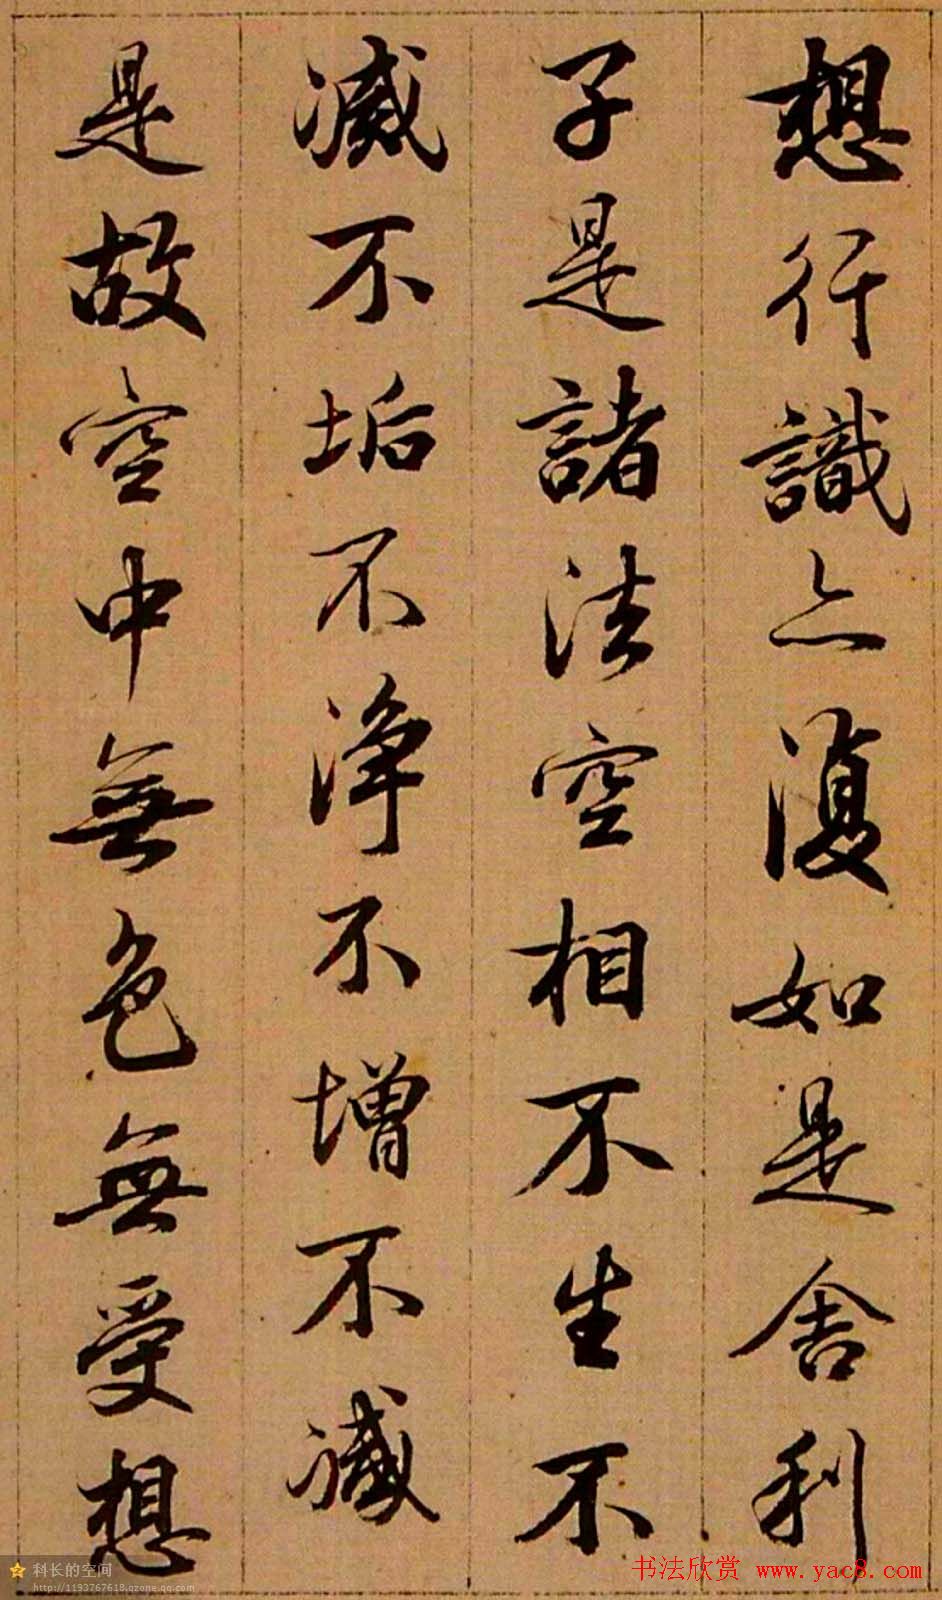 想行識亦復如是舍利
子是諸法空相不生不
滅不垢不淨不增不減
是故空中無色無受想
科长的空间
http://1193767618.qzone.qq.com
书法欣赏 www.yac8.com